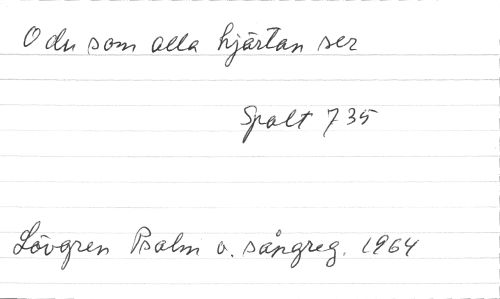 O du som alla hjärtan ser
Spalt 735
Lövgren Psalm o. sångreg. 1964